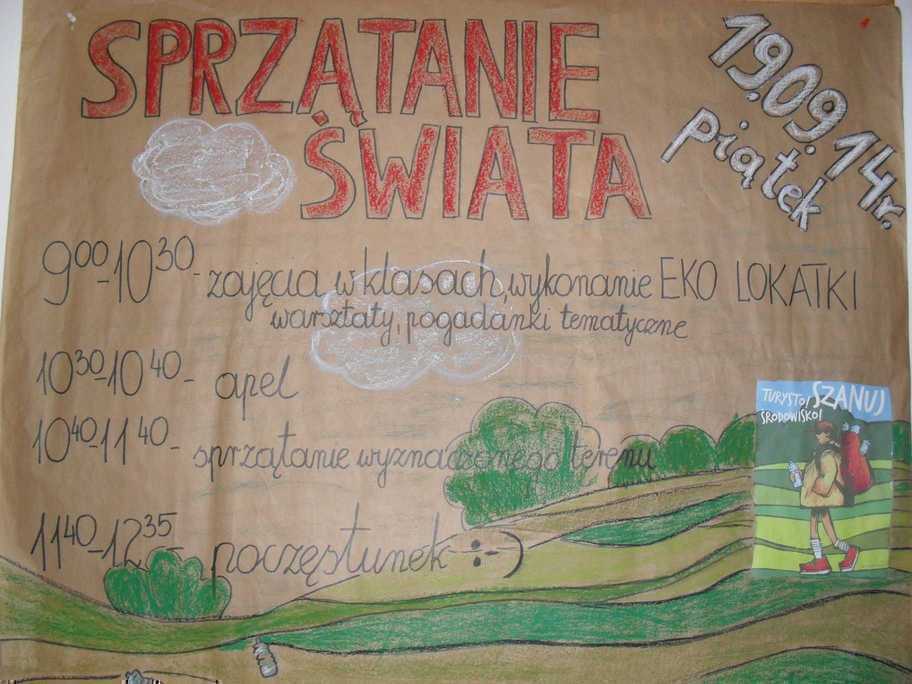 SPRZĄTANIE
ŚWIATA
19.09.14r.
piątek
9⁰⁰-10³⁰- zajęcia w klasach, wykonanie EKO LOKATKI
warsztaty, pogadanki tematyczne
10³⁰-10⁴⁰- apel
10⁴⁰-11⁴⁰- sprzątanie wyznaczonego terenu
11⁴⁰-12³⁵- poczęstunek :-)
TURYSTO! SZANUJ
ŚRODOWISKO!